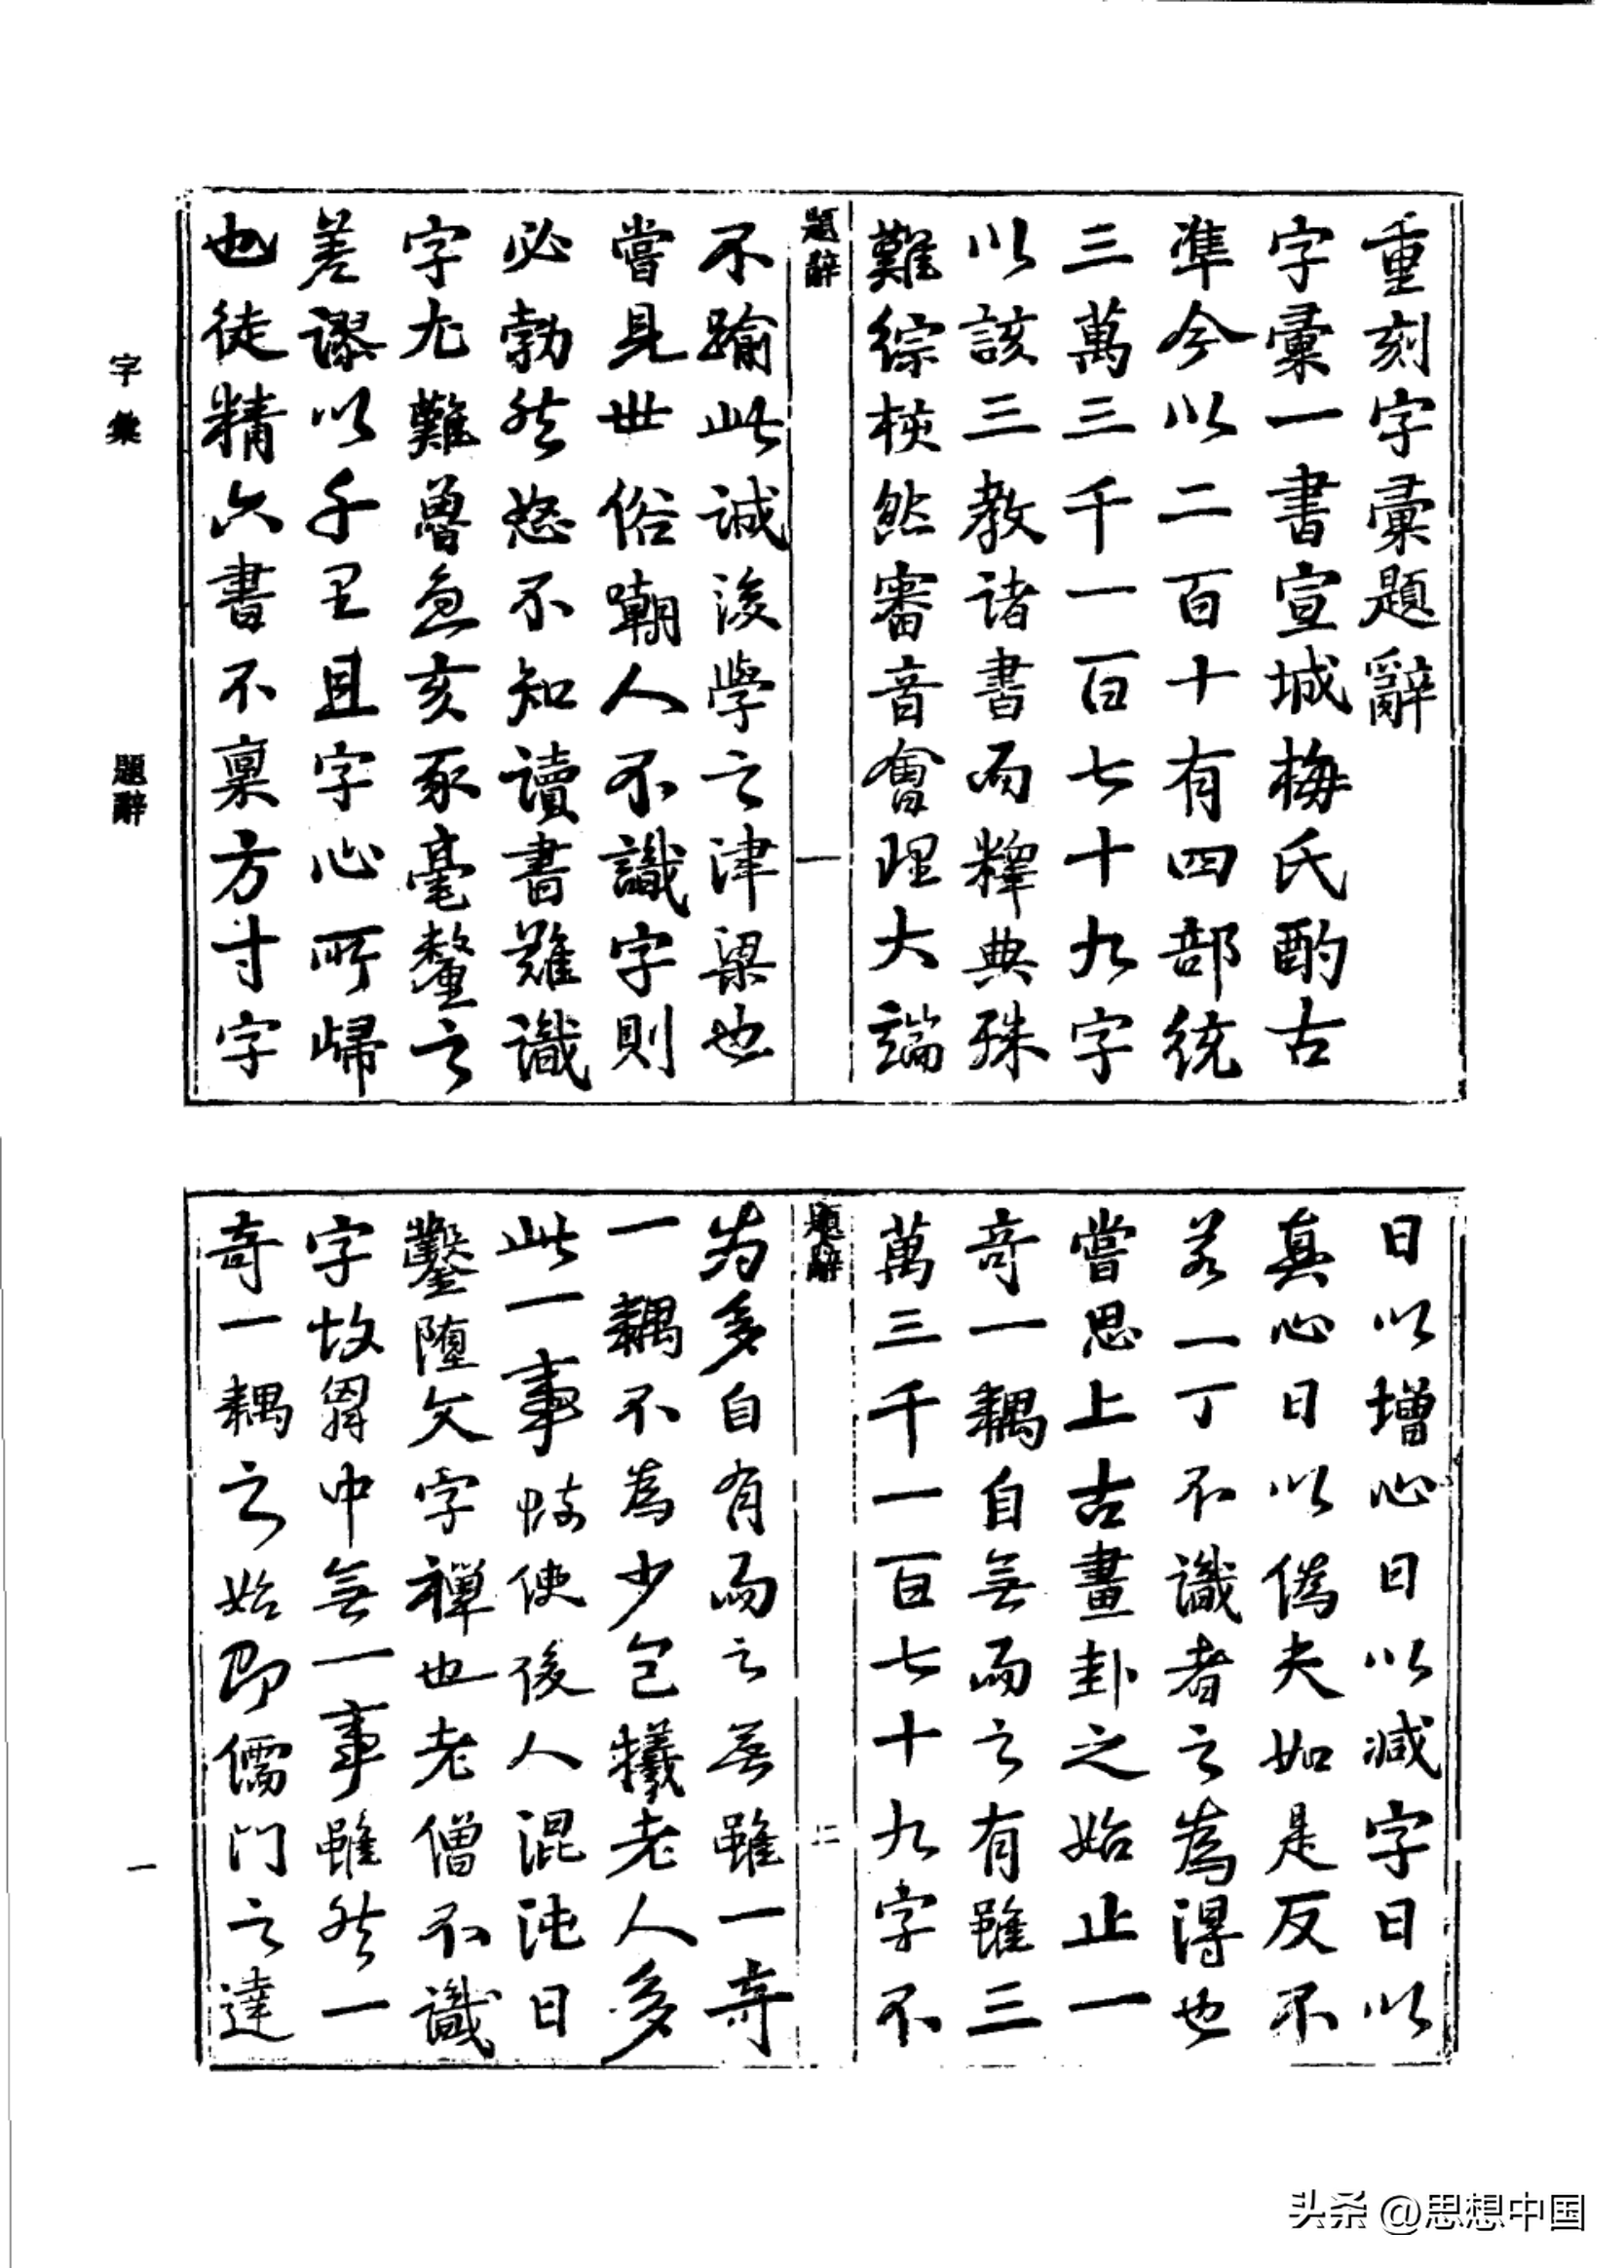 重刻字彙題辭
字彙一書宣城梅氏酌古
準今以二百十有四部統
三萬三千一百七十九字
以該三教諸書而釋典殊
難綜核然審音會理大端
題辭
一
不踰此誠後學之津梁也
嘗見世俗嘲人不識字則
必勃然怒不知讀書難識
字尤難魯魚亥豕毫釐之
差謬以千里且字心所歸
也徒精六書不稟方寸字
字彙
題辭
日以增心日以減字日以
真心日以偽夫如是反不
若一丁不識者之為得也
嘗思上古畫卦之始止一
奇一耦自無而之有雖三
萬三千一百七十九字不
題辭
二
为多自有而之無雖一奇
一耦不為少包犧老人多
此一事致使後人混沌日
鑿墮文字禪也老僧不識
字故胷中無一事雖然一
奇一耦之始即儒门之達
一
头条 @思想中国